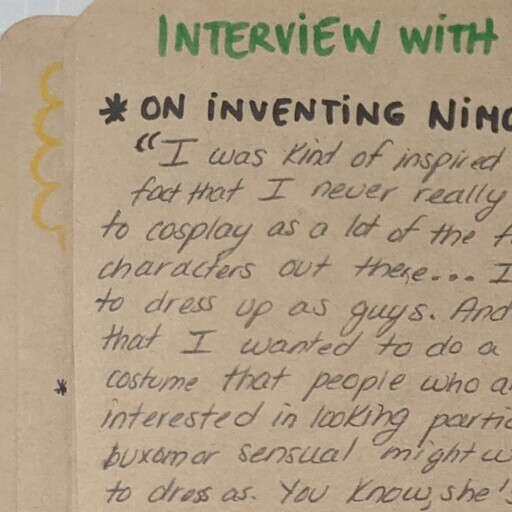 INTERVIEW WITH
* ON INVENTING NIMO
"I was kind of inspired
fact that I never really
to cosplay as a lot of the f
characters out there... I
to dress up as guys. And
that I wanted to do a
costume that people who a
interested in looking partic
buxom or sensual might w
to dress as. You know, she's
*